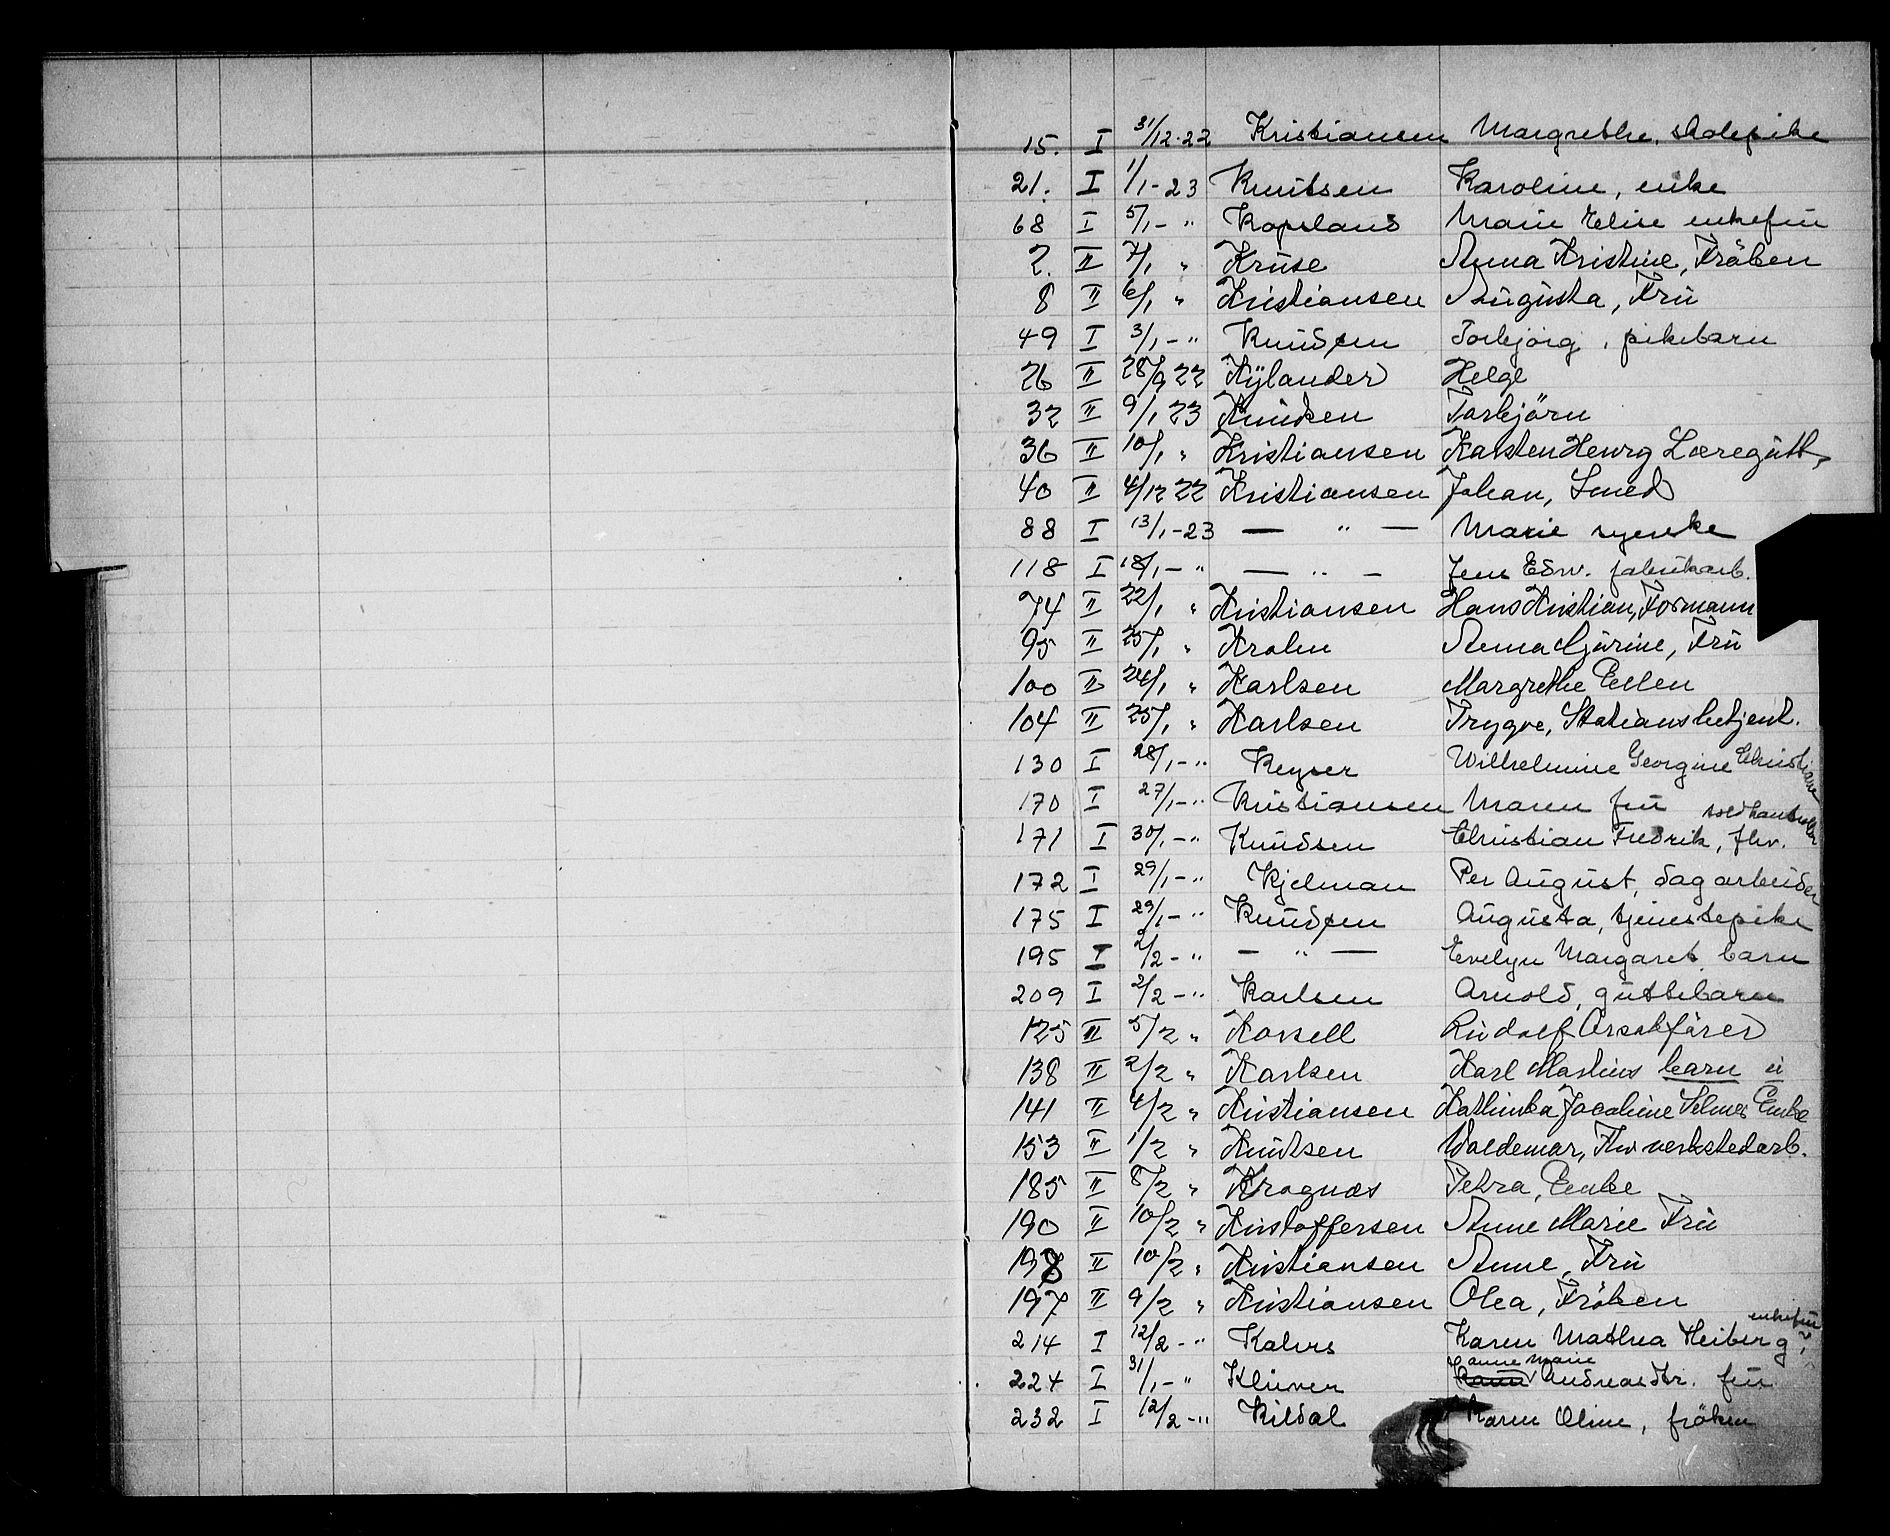 15. I 31/12-22 Kristiansen Margrethe, skolepike
21. I 1/1-23 Knutsen Karoline, enke
68 I 5/1-" Kopsland Marie Elise enkefru
2. II 7/1 " Kruse Anna Kristine, Fröken
8 II 6/1 " Kristiansen Augusta, Fru
49 I 3/1-" Knudsen Torbjörg, pikebarn
26 II 28/9 22 Kylander Helge
32 II 9/1 23 Knudsen Torbjörn
36 II 10/1 " Kristiansen Karsten Henry Læregutt,
40 II 4/12 22 Kristiansen Johan, Smed
88 I 13/1-23 — " — Marie syerske
118 I 18/1-" — " — Jens Edw. fabrikarb.
74 II 22/1 " Kristiansen Hans Kristian, Formann
95 II 25/1 " Krohn Anna Gurine, Fru
100 II 24/1 " Karlsen Margrethe Ellen
104 II 25/1 " Karlsen Trygve, Stationsbetjent.
130 I 28/1-" Keyser Wilhelmine Georgine Christiane
170 I 27/1-" Kristiansen Maren fru
171 I 30/1-" Knudsen Christian Fredrik, fhv. toldkontrollør
172 I 29/1-" Kjelman Per August, dagarbeider
175 I 29/1-" Knudsen Augusta, tjenestepike
195 I 2/2-" — " — Evelyn Margaret, barn
209 I 2/2-" Karlsen Arnold, guttebarn
125 II 5/2 " Korsell Rudolf
138 II 2/2 " Karlsen Karl Martius barn u
141 II 4/2 " Kristiansen Kathinka Jacobine Selmer Enke
153 II 1/2 " Knutsen Waldemar, Fhv verkstedarb.
185 II 8/2 " Krognæs Petra, Enke
190 II 10/2 " Kristoffersen Anne Marie Fru
198 II 10/2 " Kristiansen Anne, Fru
197 II 9/2 " Kristiansen Olea, Fröken
214 I 12/2-" Kahrs Karen Mathea Heiberg, enkefru
224 I 31/1-" Klüwer Anne Marie Andreasdtr. fru
232 I 12/2-" Kildal Karen Oline, fröken